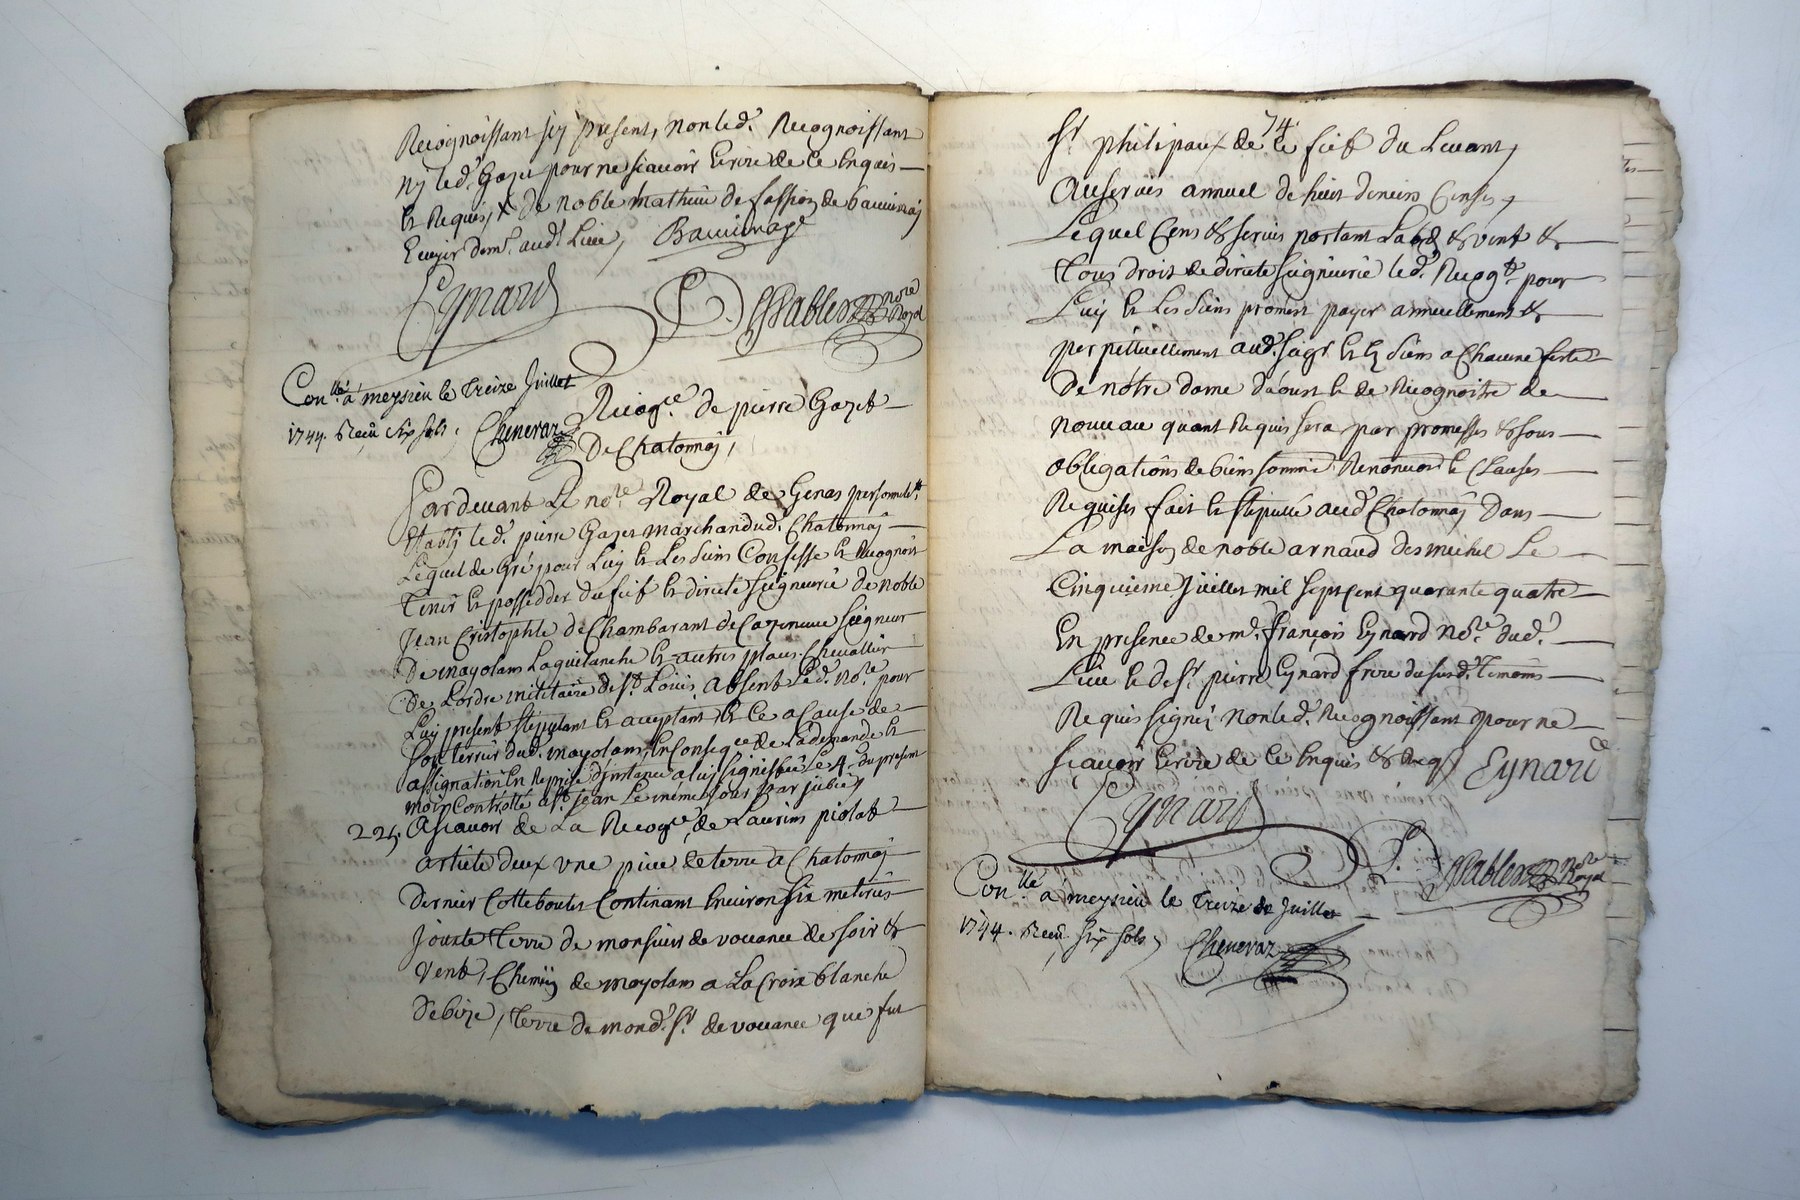 Recognoissant icy present, non led.t Recognoissant
ny led.t Gazet pour ne scavoir Ecrire de ce Enquis
Et Requis, X de noble mathieu de
Ecuyer dem.t aud.t Lieu, Bauvinaye
Eynard
Sablon no.re Royal
Con.llé a meysieu le treize Juillet
1744. Receu six sols. Cheneraz
Recog.ce de pierre Gazet
De Chatonnaj,
Pardevant Le no.re Royal de Genas personell.t
Etably led.t pierre Gazet marchand dud.t Chatonnaj
Lequel de Gré pour Luy Et Les Siens Confesse Et Recognoit
Tenir Et possedder du fief Et directe seigneurie de noble
Jean Cristophle de Chambarant de seigneur
De mayolans Et autres places Chevallier
De Lordre militaire de S.t Louis, absent Led.t No.re pour
Luy present stipulant Et acceptant Et ce a Cause de
Son terrier dud.t mayolans, En Conseq.ce de La demande Et
assignation En Reprise d'instance a luy signiffiée Le 4. du present
mois Controllé a S.t jean Le même jour par jubié
225. Ascavoir de La Recog.ce de Laurens piolat
article deux une piece de terre a Chatonnaj
Dernier Cotteboutet Contenant Environ six meterées
Jouxte terre de monsieur de vouance de soir &
vent, Chemin de mayolans a La Croix blanche
De bize, terre de mond.t S.r de vouance que fut
74.
S.r philipaux de ce fief du Levant,
Au servis annuel de huit deniers Censes,
Lequel Cens & servis portant Lods & vents &
tous droit de directe seigneurie led.t Recog.t pour
Luy Et Les Siens promest payer annuellement &
perpétuellement aud.t seig.r Et Es Siens a Chacune feste
De nôtre dame d'aoust Et de Recognoitre de
nouveau quant Requis sera par promesses & sous
obligations de biens Et Clauses
Requises fait Et stipullé aud.t Chatonnaj Dans
La maison de noble arnaud desmichel Le
Cinquieme Juillet mil sept cent quarante quatre
En presence de m.e françois Eynard No.re dud.t
Lieu Et de S.r pierre Eynard frere du susd.t temoins
Requis signés, non led.t Recognoissant pour ne
scavoir Ecrire de ce Enquis & Req.s Eynard
Eynard
Sablon No.re Royal
Con.llé a meysieu le treize de Juillet
1744. Receu six sols, Cheneraz